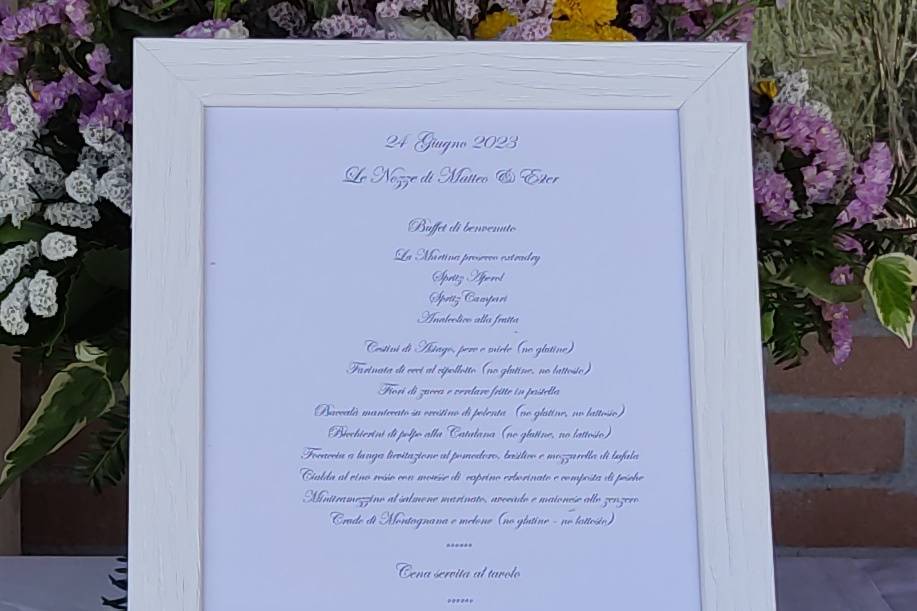 24 Giugno 2023
Le Nozze di Matteo & Ester
Buffet di benvenuto
La Martina prosecco extradry
Spritz Aperol
Spritz Campari
Analcolico alla frutta
Cestini di Asiago, pere e miele (no glutine)
Farinata di ceci al cipollotto (no glutine, no lattosio)
Fiori di zucca e verdure fritte in pastella
Baccalà mantecato su crostino di polenta (no glutine, no lattosio)
Bicchierini di polpo alla Catalana (no glutine, no lattosio)
Focaccia a lunga lievitazione al pomodoro, basilico e mozzarella di bufala
Cialda al vino rosso con mousse di caprino erborinato e composta di pesche
Minitramezzino al salmone marinato, avocado e maionese allo zenzero
Crudo di Montagnana e melone (no glutine - no lattosio)
******
Cena servita al tavolo
******